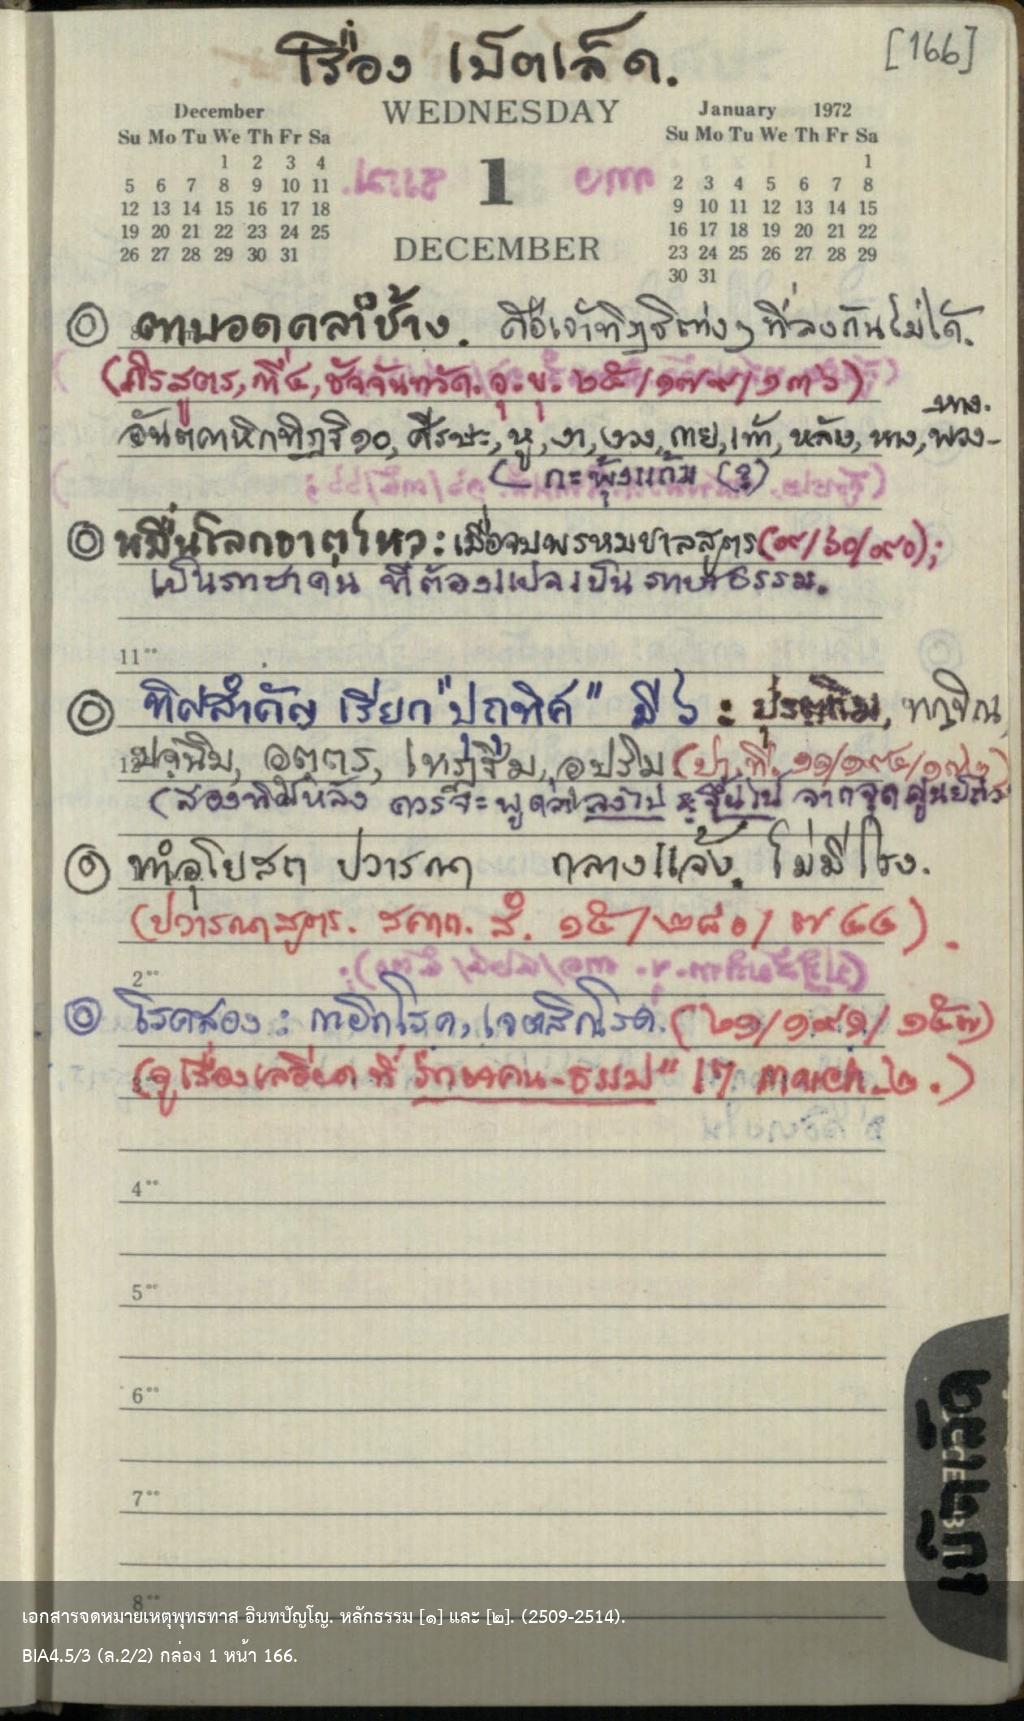 เรื่อง เบ็ตเล็ด.
[166]
December
Su Mo Tu We Th Fr Sa
1 2 3 4
5 6 7 8 9 10 11
12 13 14 15 16 17 18
19 20 21 22 23 24 25
26 27 28 29 30 31
WEDNESDAY
1
DECEMBER
January 1972
Su Mo Tu We Th Fr Sa
1
2 3 4 5 6 7 8
9 10 11 12 13 14 15
16 17 18 19 20 21 22
23 24 25 26 27 28 29
30 31
◎ ตาบอดคลำช้าง. คือเจ้าทิฏฐิต่างๆ ที่ลงกันไม่ได้.
สูตร, ที่ ๔, ชัจจันทวัค. อุ. ขุ. ๒๕/๑๗๙/๑๓๖)
อันตคาหิกทิฏฐิ ๑๐, ศีรษะ, หู, งา, งวง, กาย, เท้า, หลัง, หาง, พวง-
หาง.
( กะพุ้งแก้ม (?)
◎ หมื่นโลกธาตุไหว: เมื่อจบพรหมชาลสูตร (๙/๖๐/๙๐);
เป็นภาษาคน ที่ต้องแปลเป็นภาษาธรรม.
11
◎ ทิศสำคัญ เรียก "ปุถุทิศ" มี ๖ : ปุรตฺถิม, ทกฺขิณ
ปจฺฉิม, อุตฺตร, เหฏฺฐิม, อุปริม (ปา. ที. ๑๑/๑๙๕/
(สองทิศหลัง ควรจะพูดว่า ลงไป & ขึ้นไป จากจุดศูนย์กลาง
◎ ทำอุโบสถ ปวารณา กลางแจ้ง, ไม่มีโรง.
(ปวารณาสูตร. สคาถ. สํ. ๑๕/๒๘๐/๗๔๔).
2
◎ โรคสอง : กายิกโรค, เจตสิกโรค. (๒๑/๑๙๑/๑๕๗)
(ดูเรื่องเสียดที่ "ภาษาคน-ธรรม" 17 march ๒.)
4
5
6
7
8
เบ็ตเล็ด
เอกสารจดหมายเหตุพุทธทาส อินทปัญโญ. หลักธรรม [๑] และ [๒]. (2509-2514).
BIA4.5/3 (ล.2/2) กล่อง 1 หน้า 166.